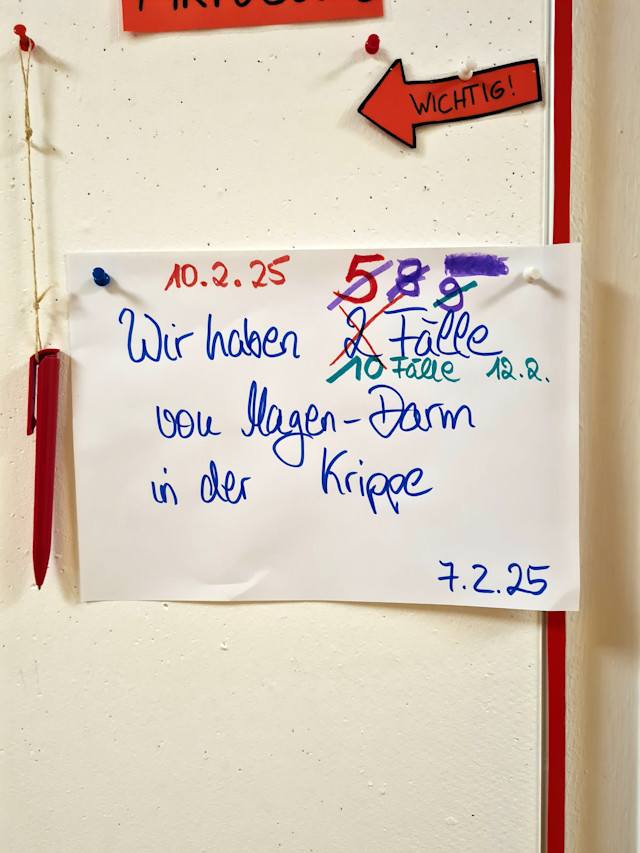 WICHTIG!
10.2.25 5 8 9
Wir haben 2 Fälle
10 Fälle 12.2.
von Magen-Darm
in der Krippe
7.2.25